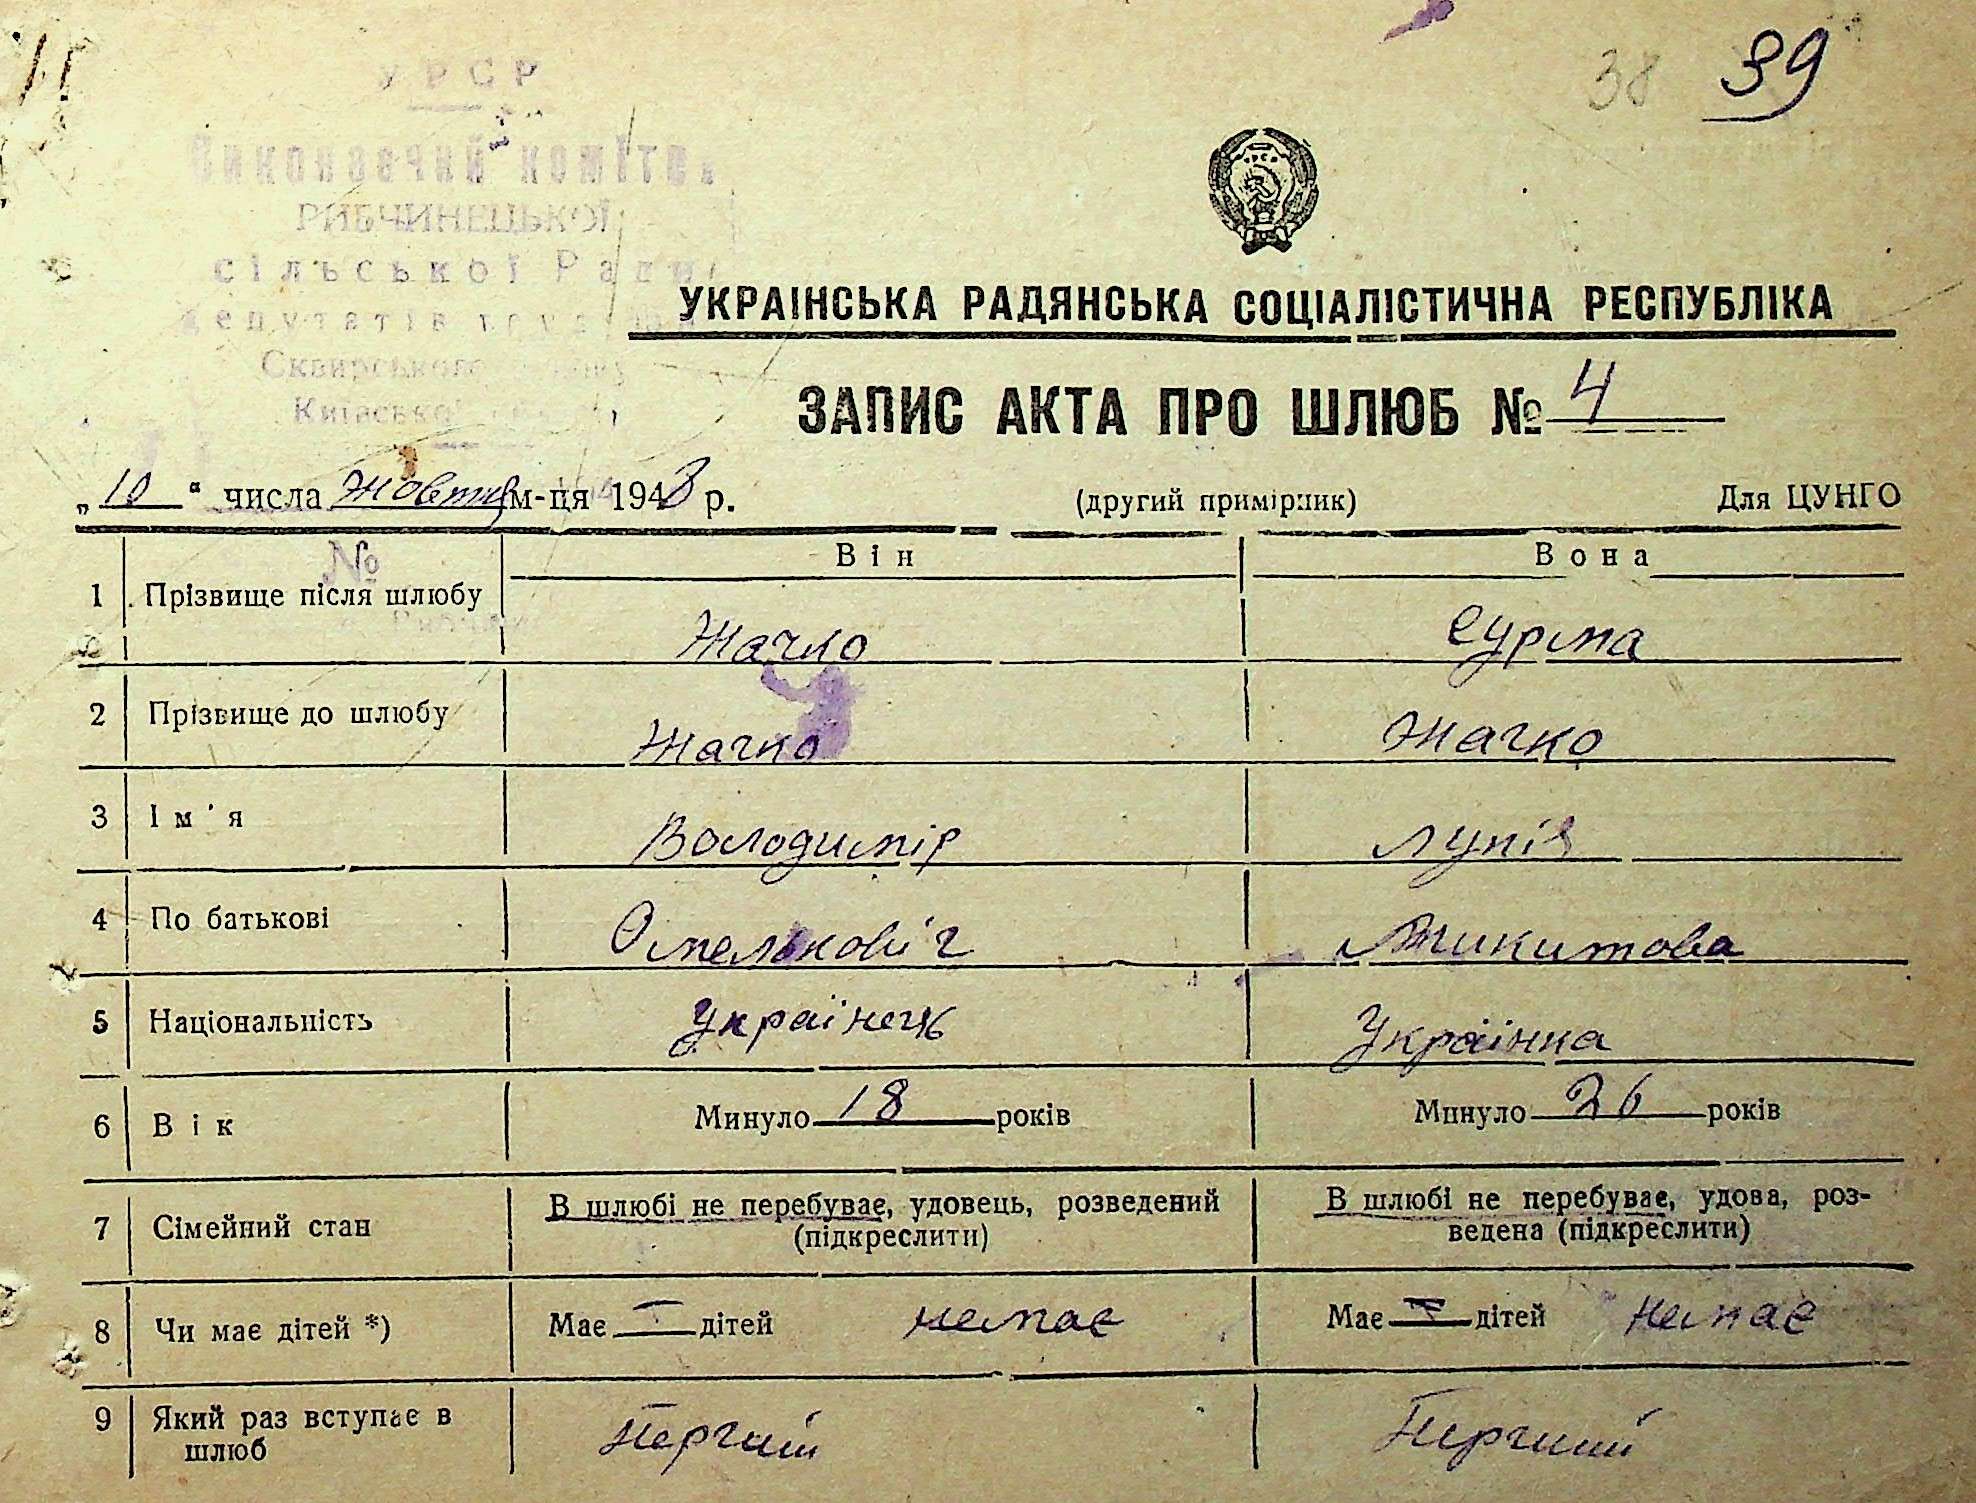 38 39
УРСР
Виконавчий коміте
РИБЧИНЕЦЬКОЇ
сільської Ради
депутатів
Сквирського
Київської
УКРАІНСЬКА РАДЯНСЬКА СОЦІАЛІСТИЧНА РЕСПУБЛІКА
ЗАПИС АКТА ПРО ШЛЮБ № 4
„10“ числа жовтня м-ця 1948 р. (другий примірник) Для ЦУНГО
№
Він Вона
1 Прізвище після шлюбу Жачко Сурма
2 Прізвище до шлюбу Жачко Жачко
3 Ім'я Володимір
4 По батькові Омелькович Микитова
5 Національність Українець Українка
6 Вік Минуло 18 років Минуло 26 років
7 Сімейний стан В шлюбі не перебуває, удовець, розведений (підкреслити) В шлюбі не перебуває, удова, роз-
ведена (підкреслити)
8 Чи має дітей *) Має — дітей немає Має — дітей немає
9 Який раз вступає в
шлюб Перчий Перчий